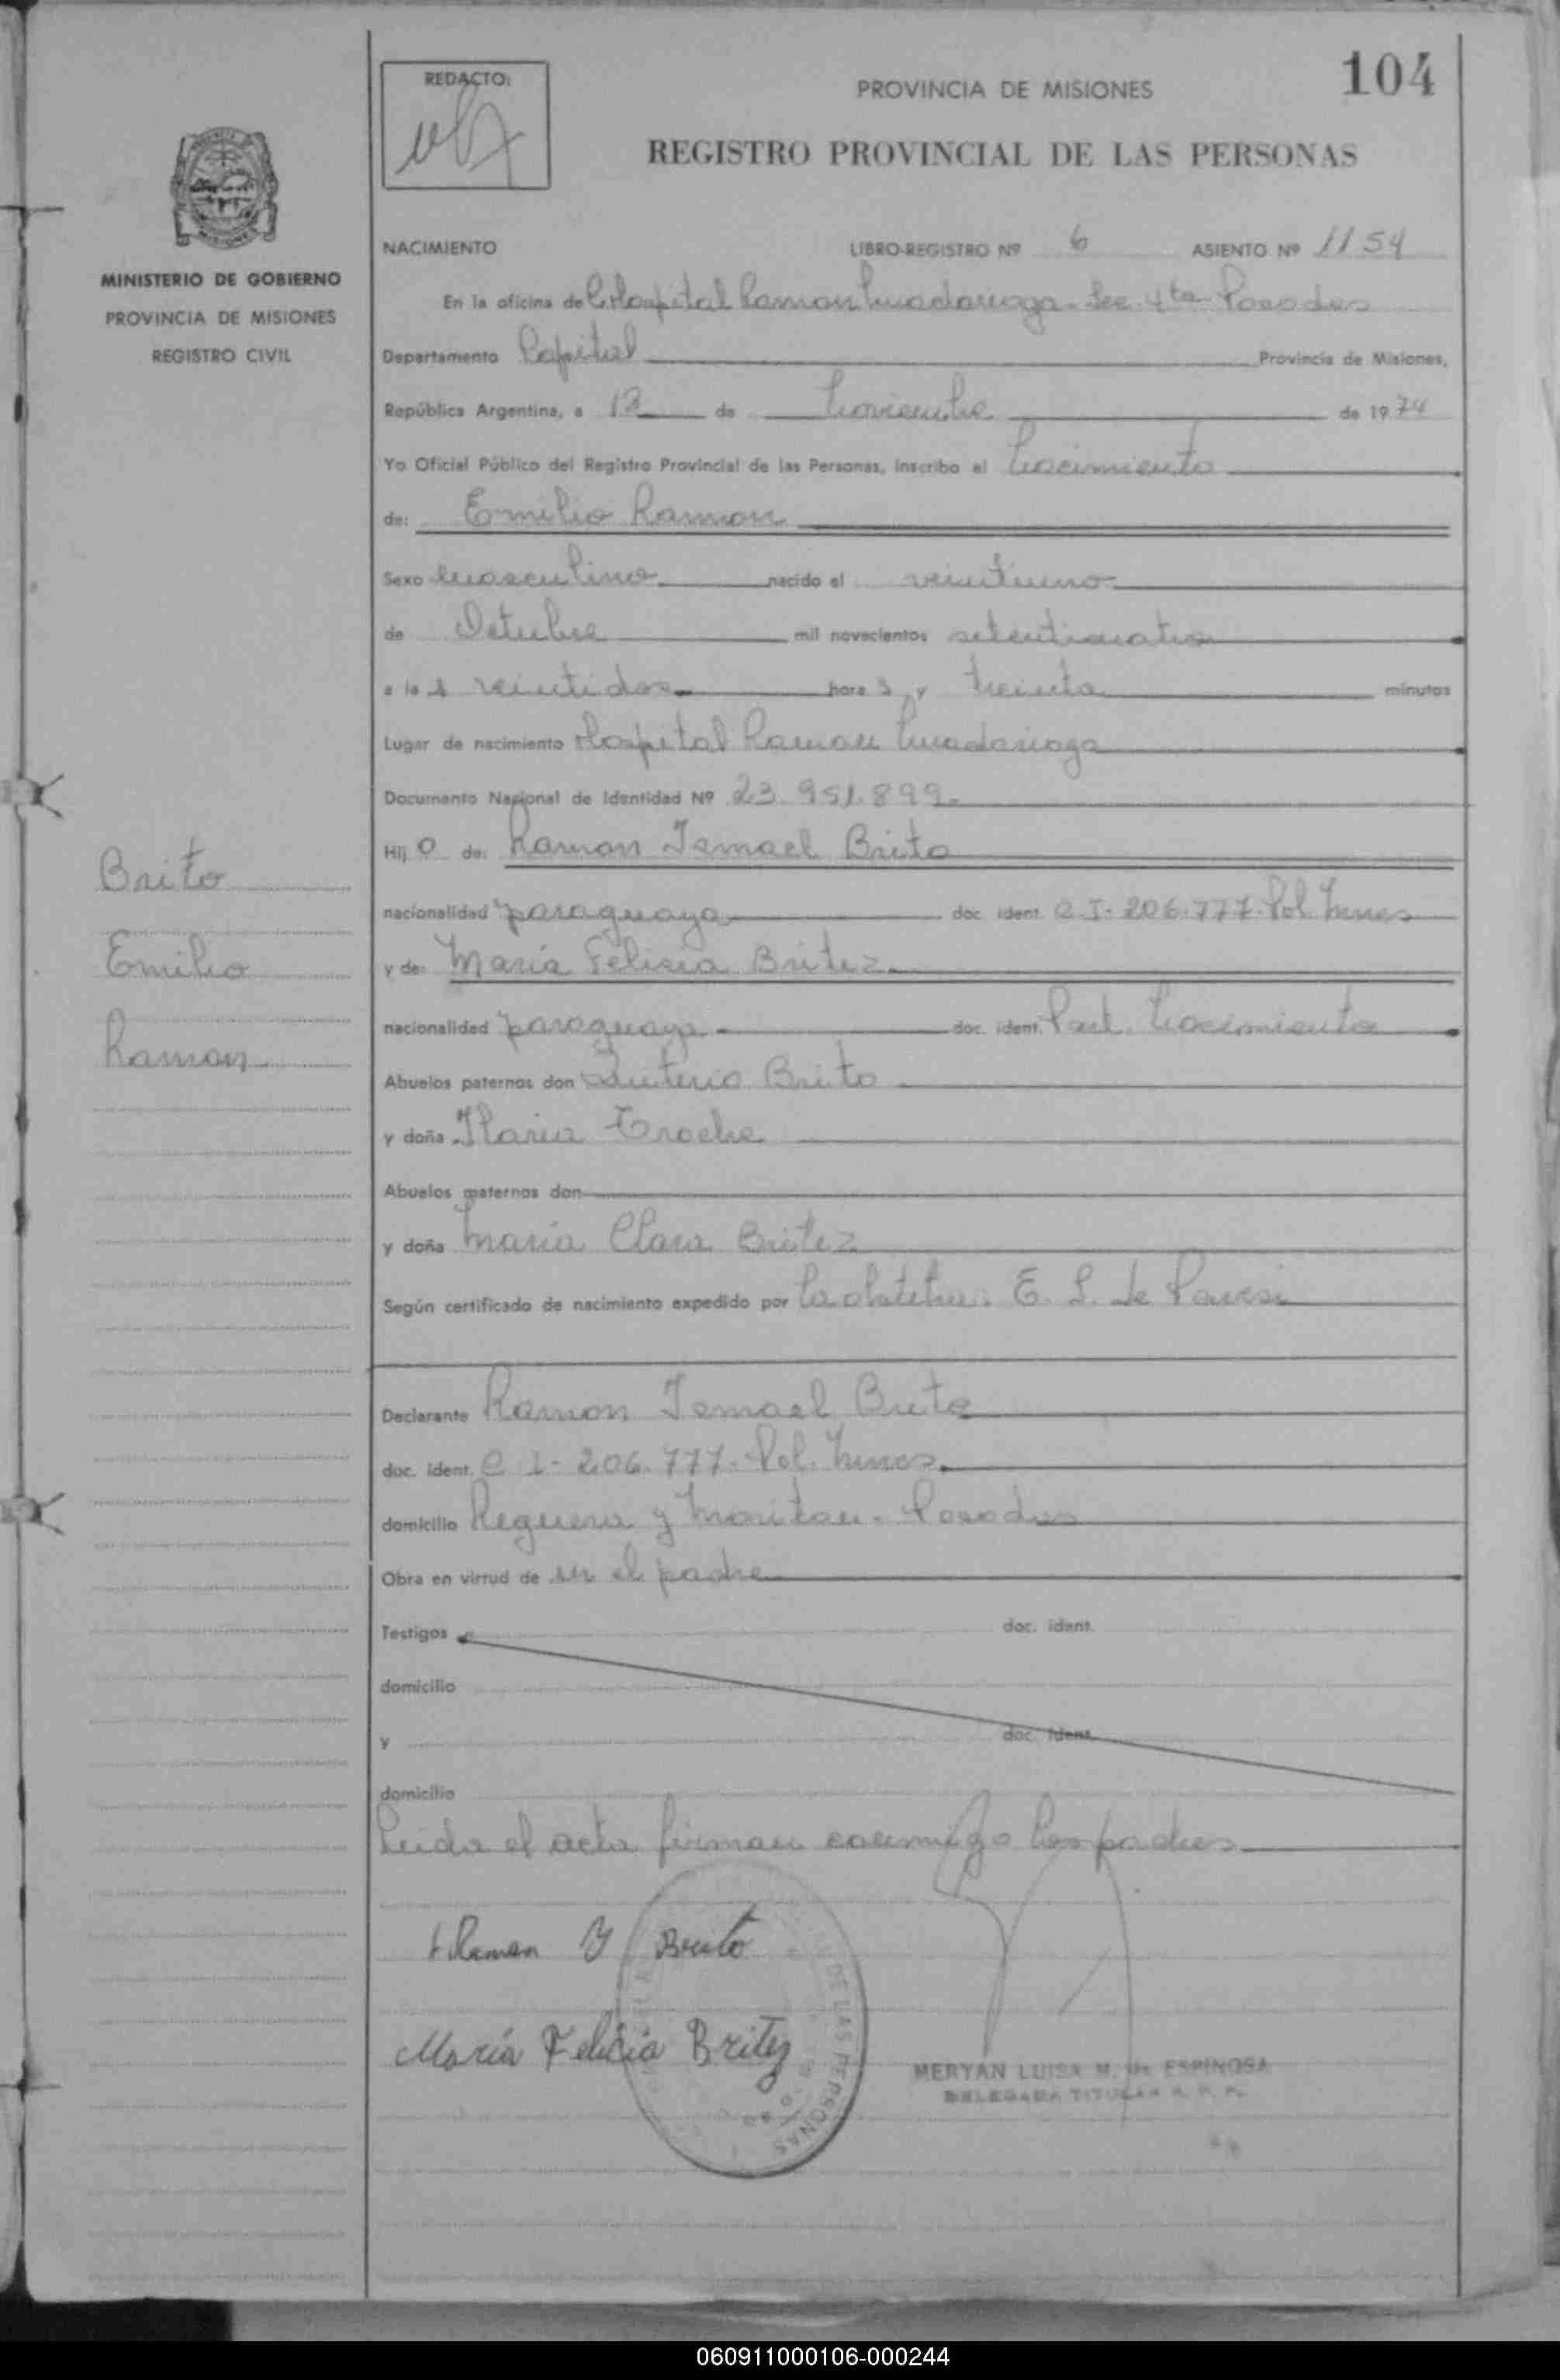 104
REDACTO:
PROVINCIA DE MISIONES
REGISTRO PROVINCIAL DE LAS PERSONAS
MINISTERIO DE GOBIERNO
PROVINCIA DE MISIONES
REGISTRO CIVIL
NACIMIENTO LIBRO-REGISTRO Nº 6 ASIENTO Nº 1154
En la oficina del Hospital Ramon Madariaga - Sec. 4ta - Posadas
Departamento Capital Provincia de Misiones,
República Argentina, a 12 de Noviembre de 1974
Yo Oficial Público del Registro Provincial de las Personas, inscribo el Nacimiento
de: Emilio Ramon
Sexo Masculino nacido el veintiuno
de Octubre mil novecientos setenticuatro
a las veintidos horas y treinta minutos
Lugar de nacimiento Hospital Ramon Madariaga
Documento Nacional de Identidad Nº 23.951.899.
Hijo de: Ramon Ismael Brito
nacionalidad paraguaya doc. ident. C I - 206.777 - Pol. Mnes
y de: Maria Felicia Britez
nacionalidad paraguaya doc. ident. Part. Nacimiento
Abuelos paternos don Brito
y doña Ilaria Troche
Abuelos maternos don
y doña Maria Clara Britez
Según certificado de nacimiento expedido por la obstetra: E. S. de
Brito
Emilio
Ramon
Declarante Ramon Ismael Brito
doc. ident. C I - 206.777 - Pol. Mnes.
domicilio Reguera y - Posadas
Obra en virtud de ser el padre
Testigos doc. ident.
domicilio
y doc. ident.
domicilio
Leida el acta firman conmigo los padres
Ramon Y Brito
María Felicia Britez
DE LAS PERSONAS
MERYAN LUISA M. de ESPINOSA
DELEGADA TITULAR R. P. P.
060911000106-000244